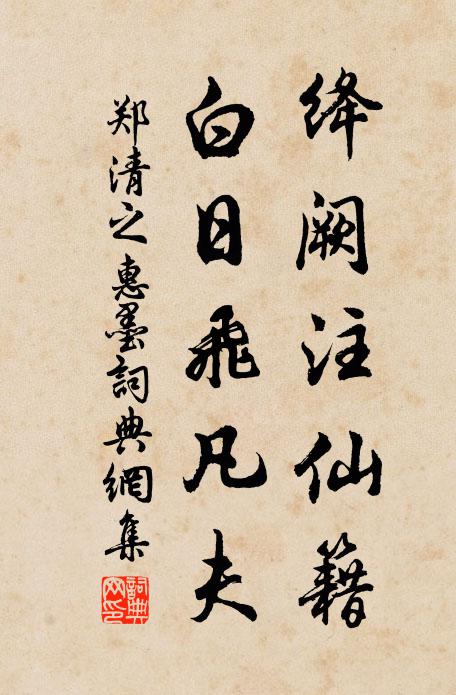 绛阙注仙籍
白日飛凡夫
郑清之惠墨詞典網集
詞典网印